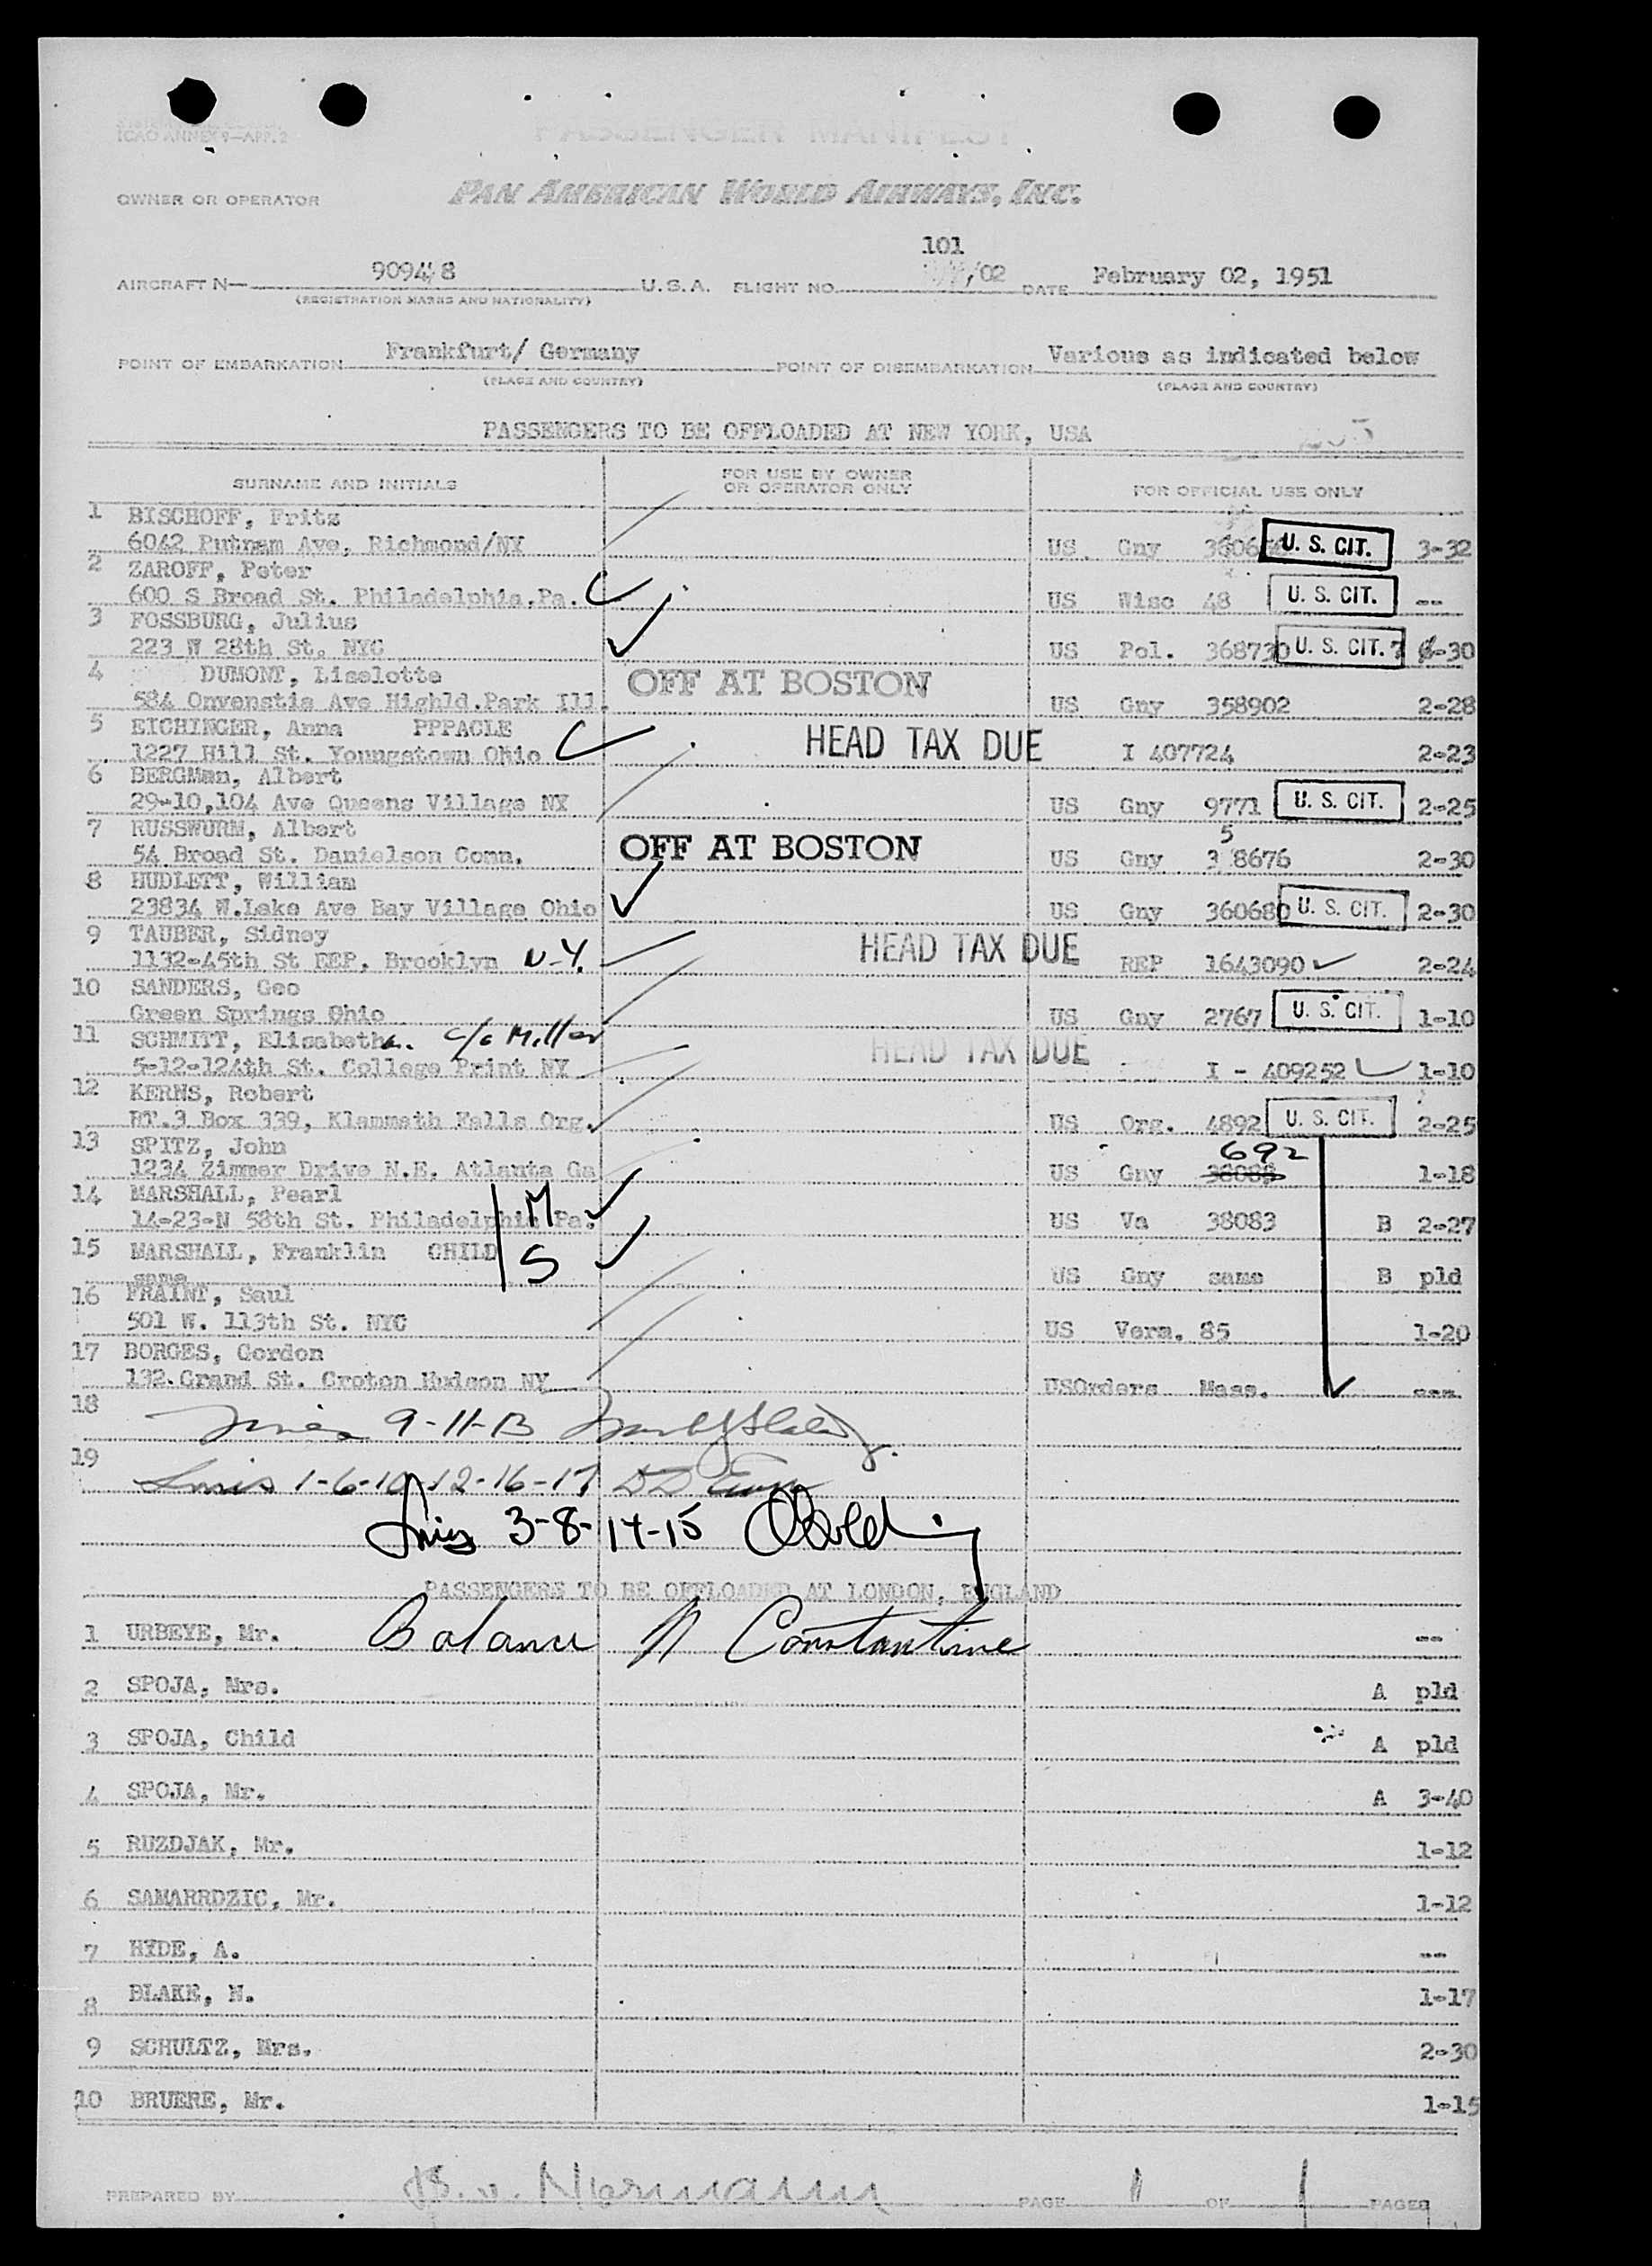 ICAO ANNEX 9—APP. 2
PASSENGER MANIFEST
OWNER OR OPERATOR PAN AMERICAN WORLD AIRWAYS, INC.
101
AIRCRAFT N— 90948 U.S.A. FLIGHT NO. /02 DATE February 02, 1951
(REGISTRATION MARKS AND NATIONALITY)
POINT OF EMBARKATION Frankfurt/ Germany POINT OF DISEMBARKATION Various as indicated below
(PLACE AND COUNTRY) (PLACE AND COUNTRY)
PASSENGERS TO BE OFFLOADED AT NEW YORK, USA
SURNAME AND INITIALS FOR USE BY OWNER OR OPERATOR ONLY FOR OFFICIAL USE ONLY
1 BISCHOFF, Fritz
6042 Putnam Ave, Richmond/NY US Gny 3606 U. S. CIT. 3-32
2 ZAROFF, Peter
600 S Broad St. Philadelphia.Pa. US Wisc 48 U. S. CIT. --
3 FOSSBURG, Julius
223 W 28th St. NYC US Pol. 368730 U. S. CIT. -30
4 DUMONT, Liselotte OFF AT BOSTON
584 Onvenstia Ave Highld.Park Ill. US Gny 358902 2-28
5 EICHINGER, Anna PPPACLE HEAD TAX DUE
1227 Hill St. Youngstown Ohio I 407724 2-23
6 BERGMan, Albert
29-10,104 Ave Queens Village NY US Gny 9771 U. S. CIT. 2-25
7 RUSSWURM, Albert OFF AT BOSTON 5
54 Broad St. Danielson Conn. US Gny 3 8676 2-30
8 HUDLETT, William
23834 W.Lake Ave Bay Village Ohio US Gny 360680 U. S. CIT. 2-30
9 TAUBER, Sidney HEAD TAX DUE
1132-45th St EEP, Brooklyn N.Y. REP 1643090 2-24
10 SANDERS, Geo
Green Springs Ohio US Gny 2767 U. S. CIT. 1-10
11 SCHMITT, Elisabetha. c/o Miller HEAD TAX DUE
5-12-124th St. College Print NY I - 409252 1-10
12 KERNS, Robert
RT.3 Box 339, Klammath Falls Org. US Org. 4892 U. S. CIT. 2-25
13 SPITZ, John 692
1234 Zimmer Drive N.E. Atlanta Ga US Gny 38088 1-18
14 MARSHALL, Pearl M
14-23-N 58th St. Philadelphia Pa. US Va 38083 B 2-27
15 MARSHALL, Franklin CHILD S
same US Gny same B pld
16 FRAINT, Saul
501 W. 113th St. NYC US Verm. 85 1-20
17 BORGES, Gordon
132.Grand St. Croton Hudson NY USOrders Mass. ---
18
9-11-13
19
1-6-10-12-16-17
3-8-14-15
PASSENGERS TO BE OFFLOADED AT LONDON, ENGLAND
1 URBEYE, Mr. Balance N Constantine --
2 SPOJA, Mrs. A pld
3 SPOJA, Child A pld
4 SPOJA, Mr. A 3-40
5 RUZDJAK, Mr. 1-12
6 SAMARRDZIC, Mr. 1-12
7 HYDE, A. --
8 BLAKE, N. 1-17
9 SCHULTZ, Mrs. 2-30
10 BRUERE, Mr. 1-15
PREPARED BY PAGE 1 OF 1 PAGES